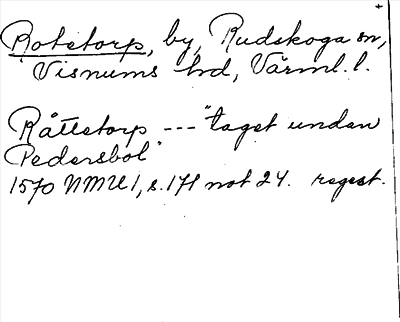 Rotstorp, by, Rudskoga sn,
Visnums hd, Värml. l.
Råttstorp --- "taget unden
Pedersbol"
1570 NMU 1, s. 171 not 24. regest.